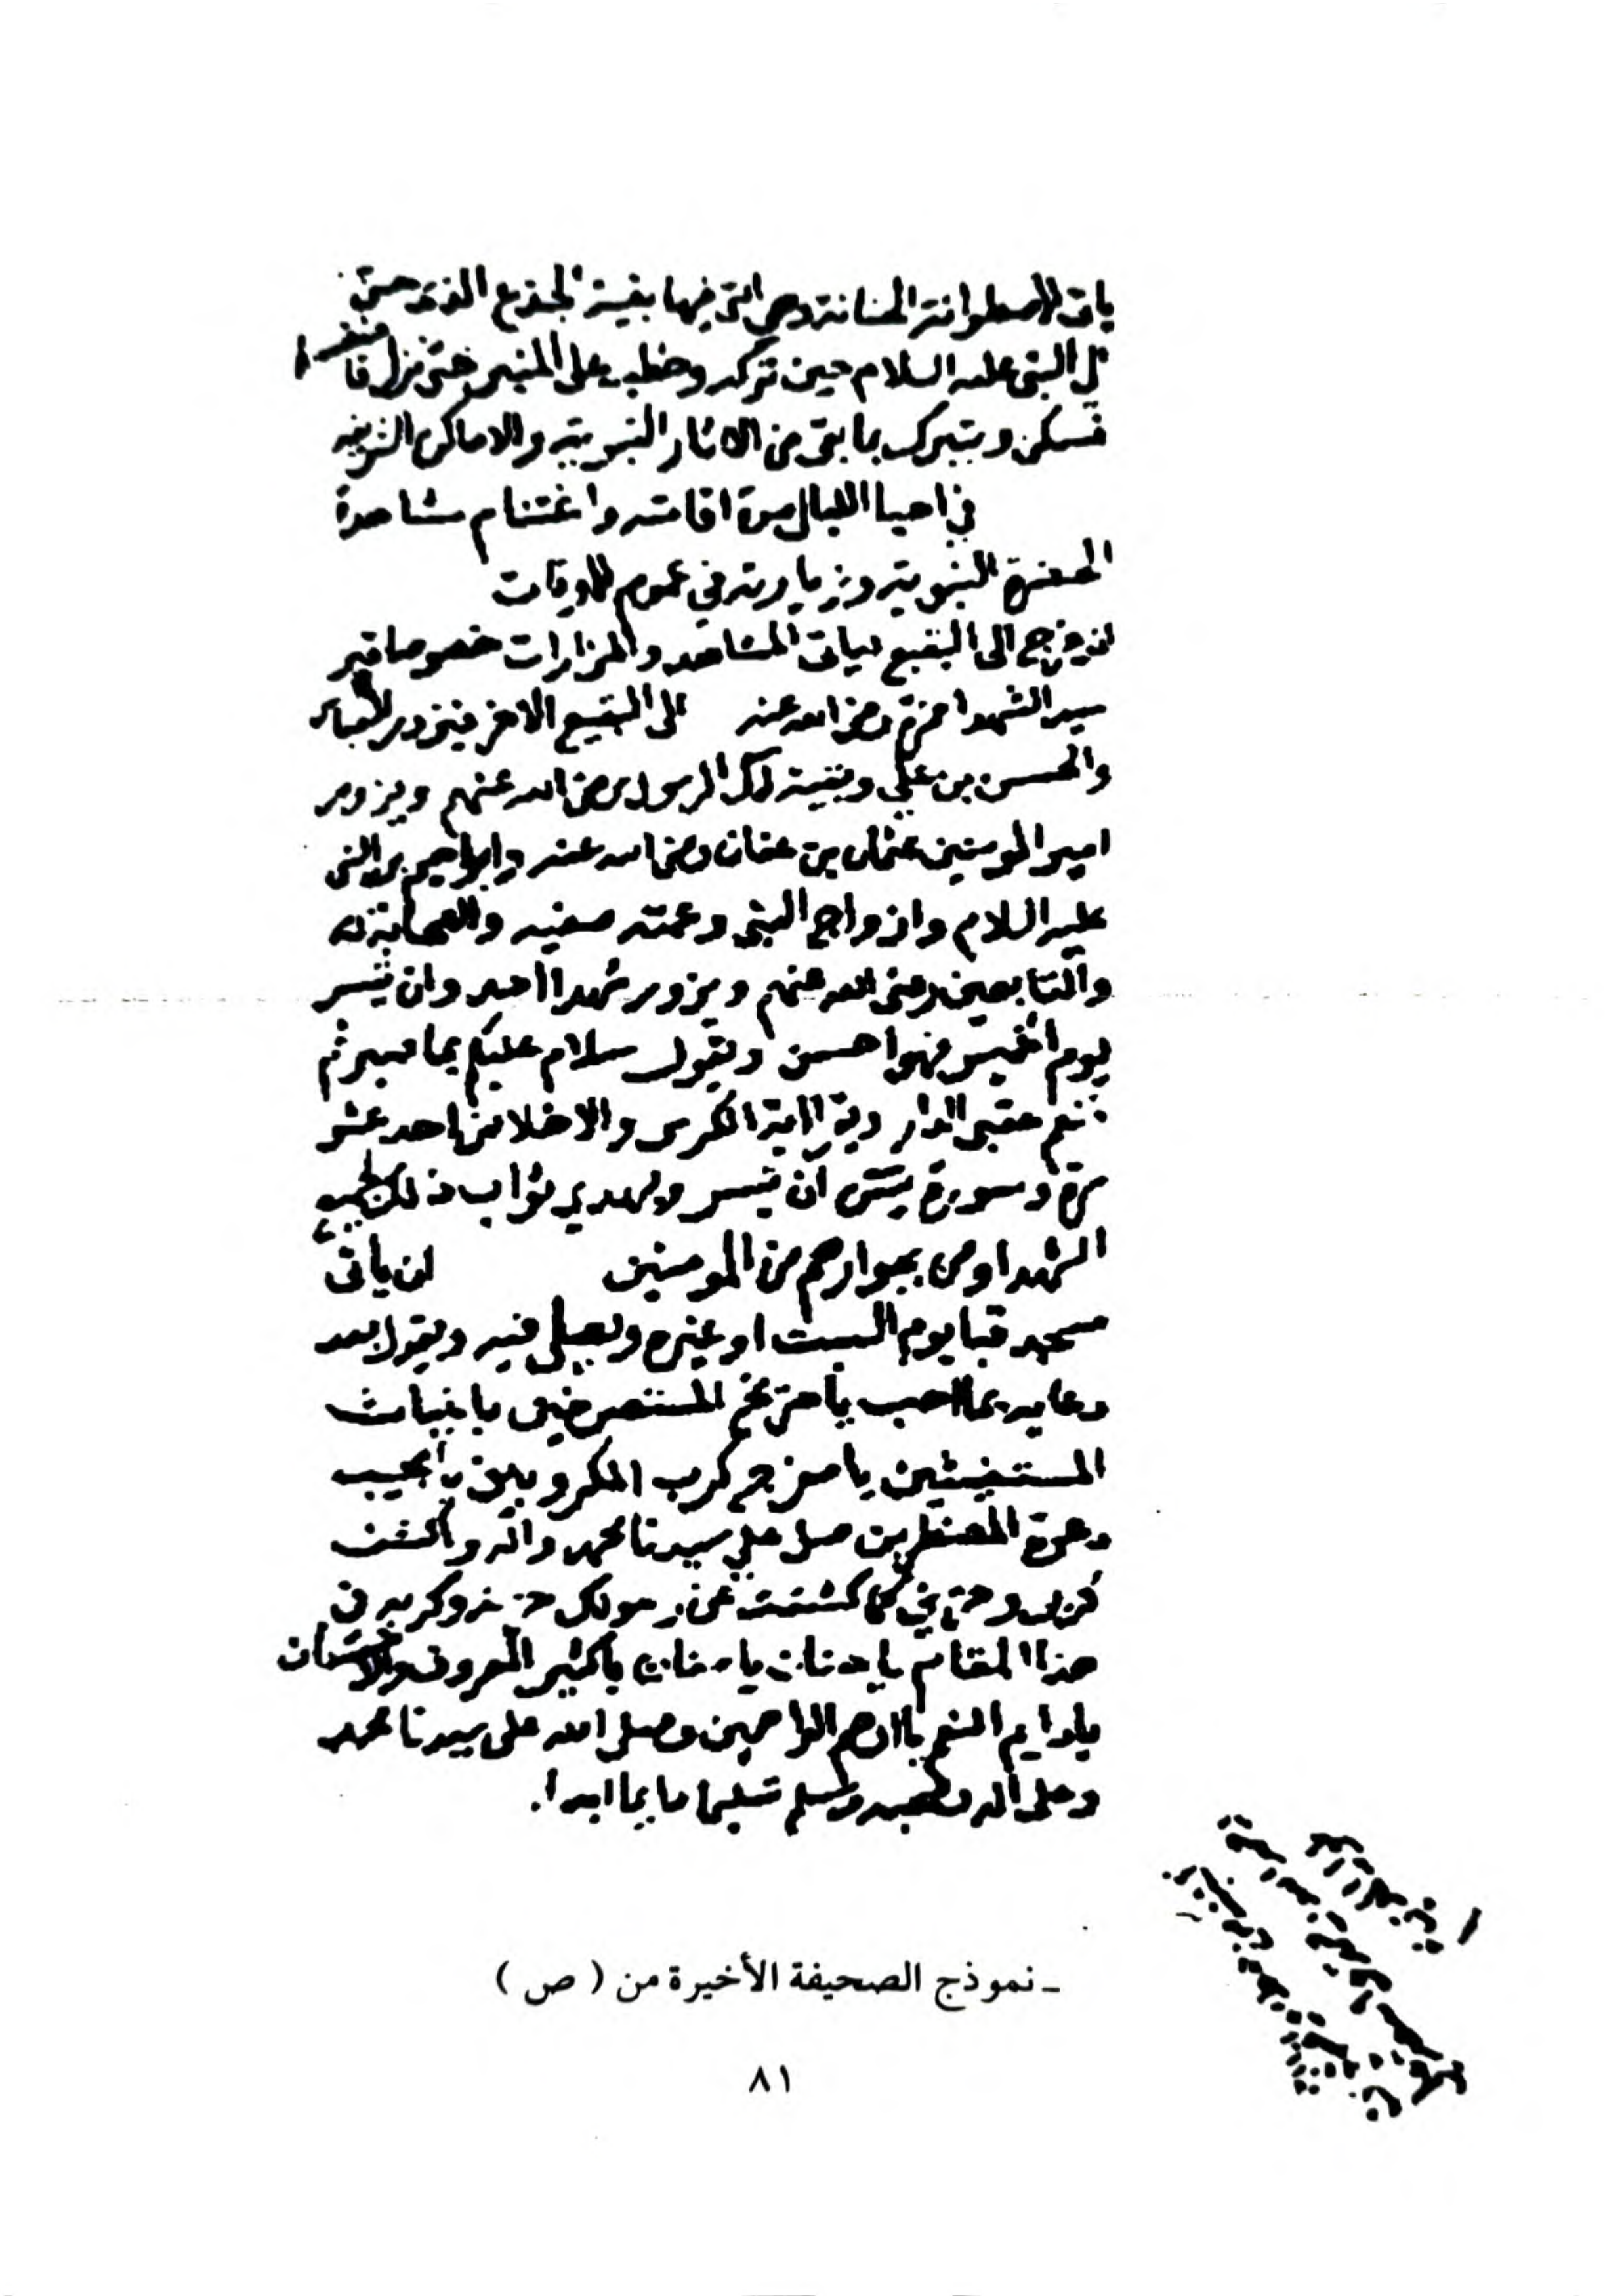 ياتى الاسطوانة الحنانة وهى التى فيها بقية الجذع الذى حن
الى النبى عليه السلام حين تركه وخطب على المنبر حتى نزل فاحتضنه
فسكن ويتبرك بما بقى من الاثار النبوية والاماكن الشريفه
فى احيا الليالى مدة اقامته واغتنام مشاهدة
الحضرة النبوية وزيارته فى عموم الاوقات
ان يخرج الى البقيع فياتى المشاهد والمزارات خصوصا قبر
سيد الشهدا حمزة رضى الله عنه الى البقيع الاخر فيزور العباس
والحسن بن على وبقية ال الرسول رضى الله عنهم ويزور
امير المومنين عثمان بن عفان رضى الله عنه وابراهيم بن النبى
عليه السلام وازواج النبى وعمته صفيه والصحابة
والتابعين رضى الله عنهم ويزور شهدا احد وان تيسر
يوم الخميس فهو احسن ويقول سلام عليكم بما صبرتم
فنعم عقبى الدار ويقرا اية الكرسى والاخلاص احد عشر
مرة وسورة يس ان تيسر ويهدى ثواب ذلك لجميع
الشهدا ومن بجوارهم من المومنين ان ياتى
مسجد قبا يوم السبت او غيره ويصلى فيه ويقول بعد
دعايه بما احب يا صريخ المستصرخين يا غياث
المستغيثين يا مفرج كرب المكروبين يا مجيب
دعوة المضطرين صل على سيدنا محمد واله واكشف
كربى وحزنى كما كشفت عن رسولك حزنه وكربه فى
هذا المقام يا حنان يا منان يا كثير المعروف والاحسان
يا دايم النعم يا ارحم الراحمين وصلى الله على سيدنا محمد
وعلى اله وصحبه وسلم تسليما دايما ابدا.
ـ نموذج الصحيفة الأخيرة من ( ص )
٨١